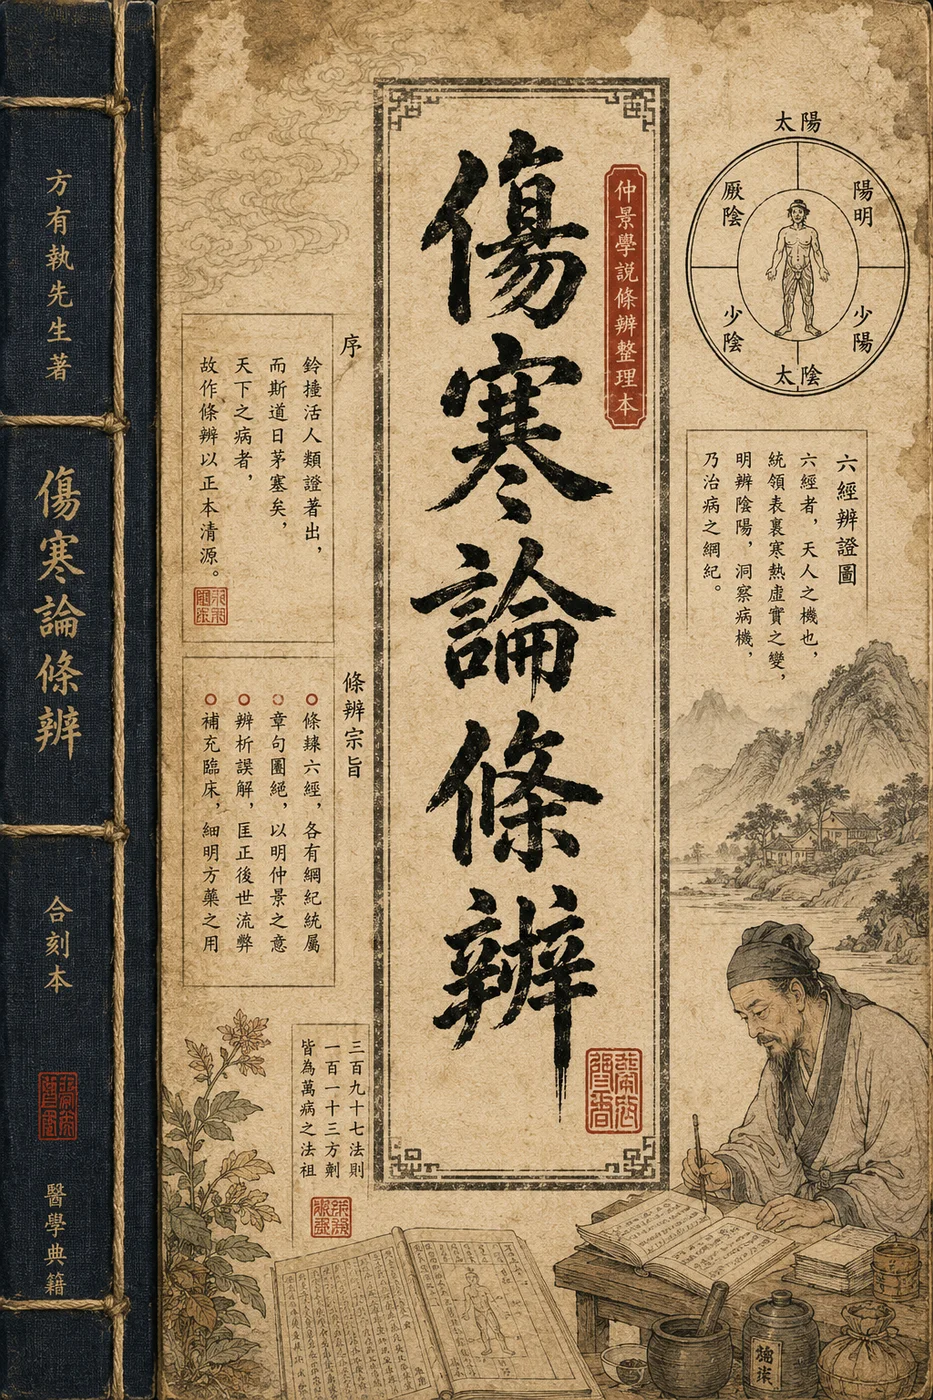 方有執先生著
傷寒論條辨
合刻本
醫學典籍
傷寒論條辨
仲景學説條辨整理本
太陽
陽明
少陽
太陰
少陰
厥陰
六經辨證圖
六經者，天人之機也，
統領表裏寒熱虛實之變，
明辨陰陽，洞察病機，
乃治病之綱紀。
序
鈴撞活人類證著出，
而斯道日茅塞矣，
天下之病者，
故作條辨以正本清源。
條辨宗旨
條六經，各有綱紀統屬
章句圈絕，以明仲景之意
辨析誤解，匡正後世流弊
補充臨床，細明方藥之用
三百九十七法則
一百一十三方劑
皆為萬病之法祖